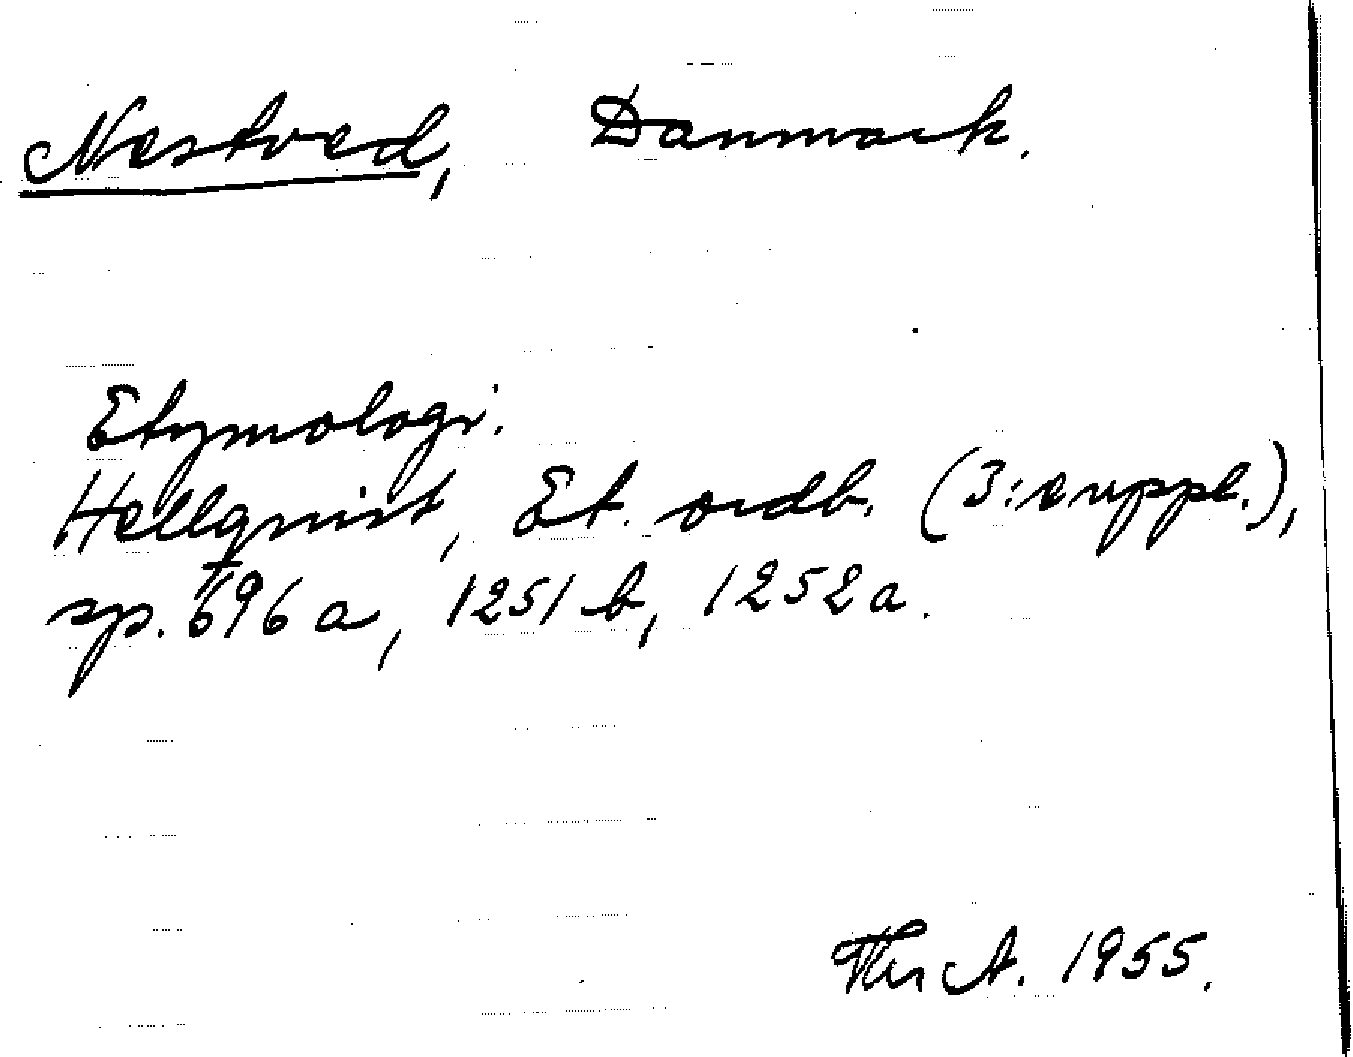 Næstved, Danmark.
Etymologi.
Hellquist, Et. ordb. (3:e uppl.),
sp. 696 a, 1251 b, 1252 a.
Ths A. 1955.